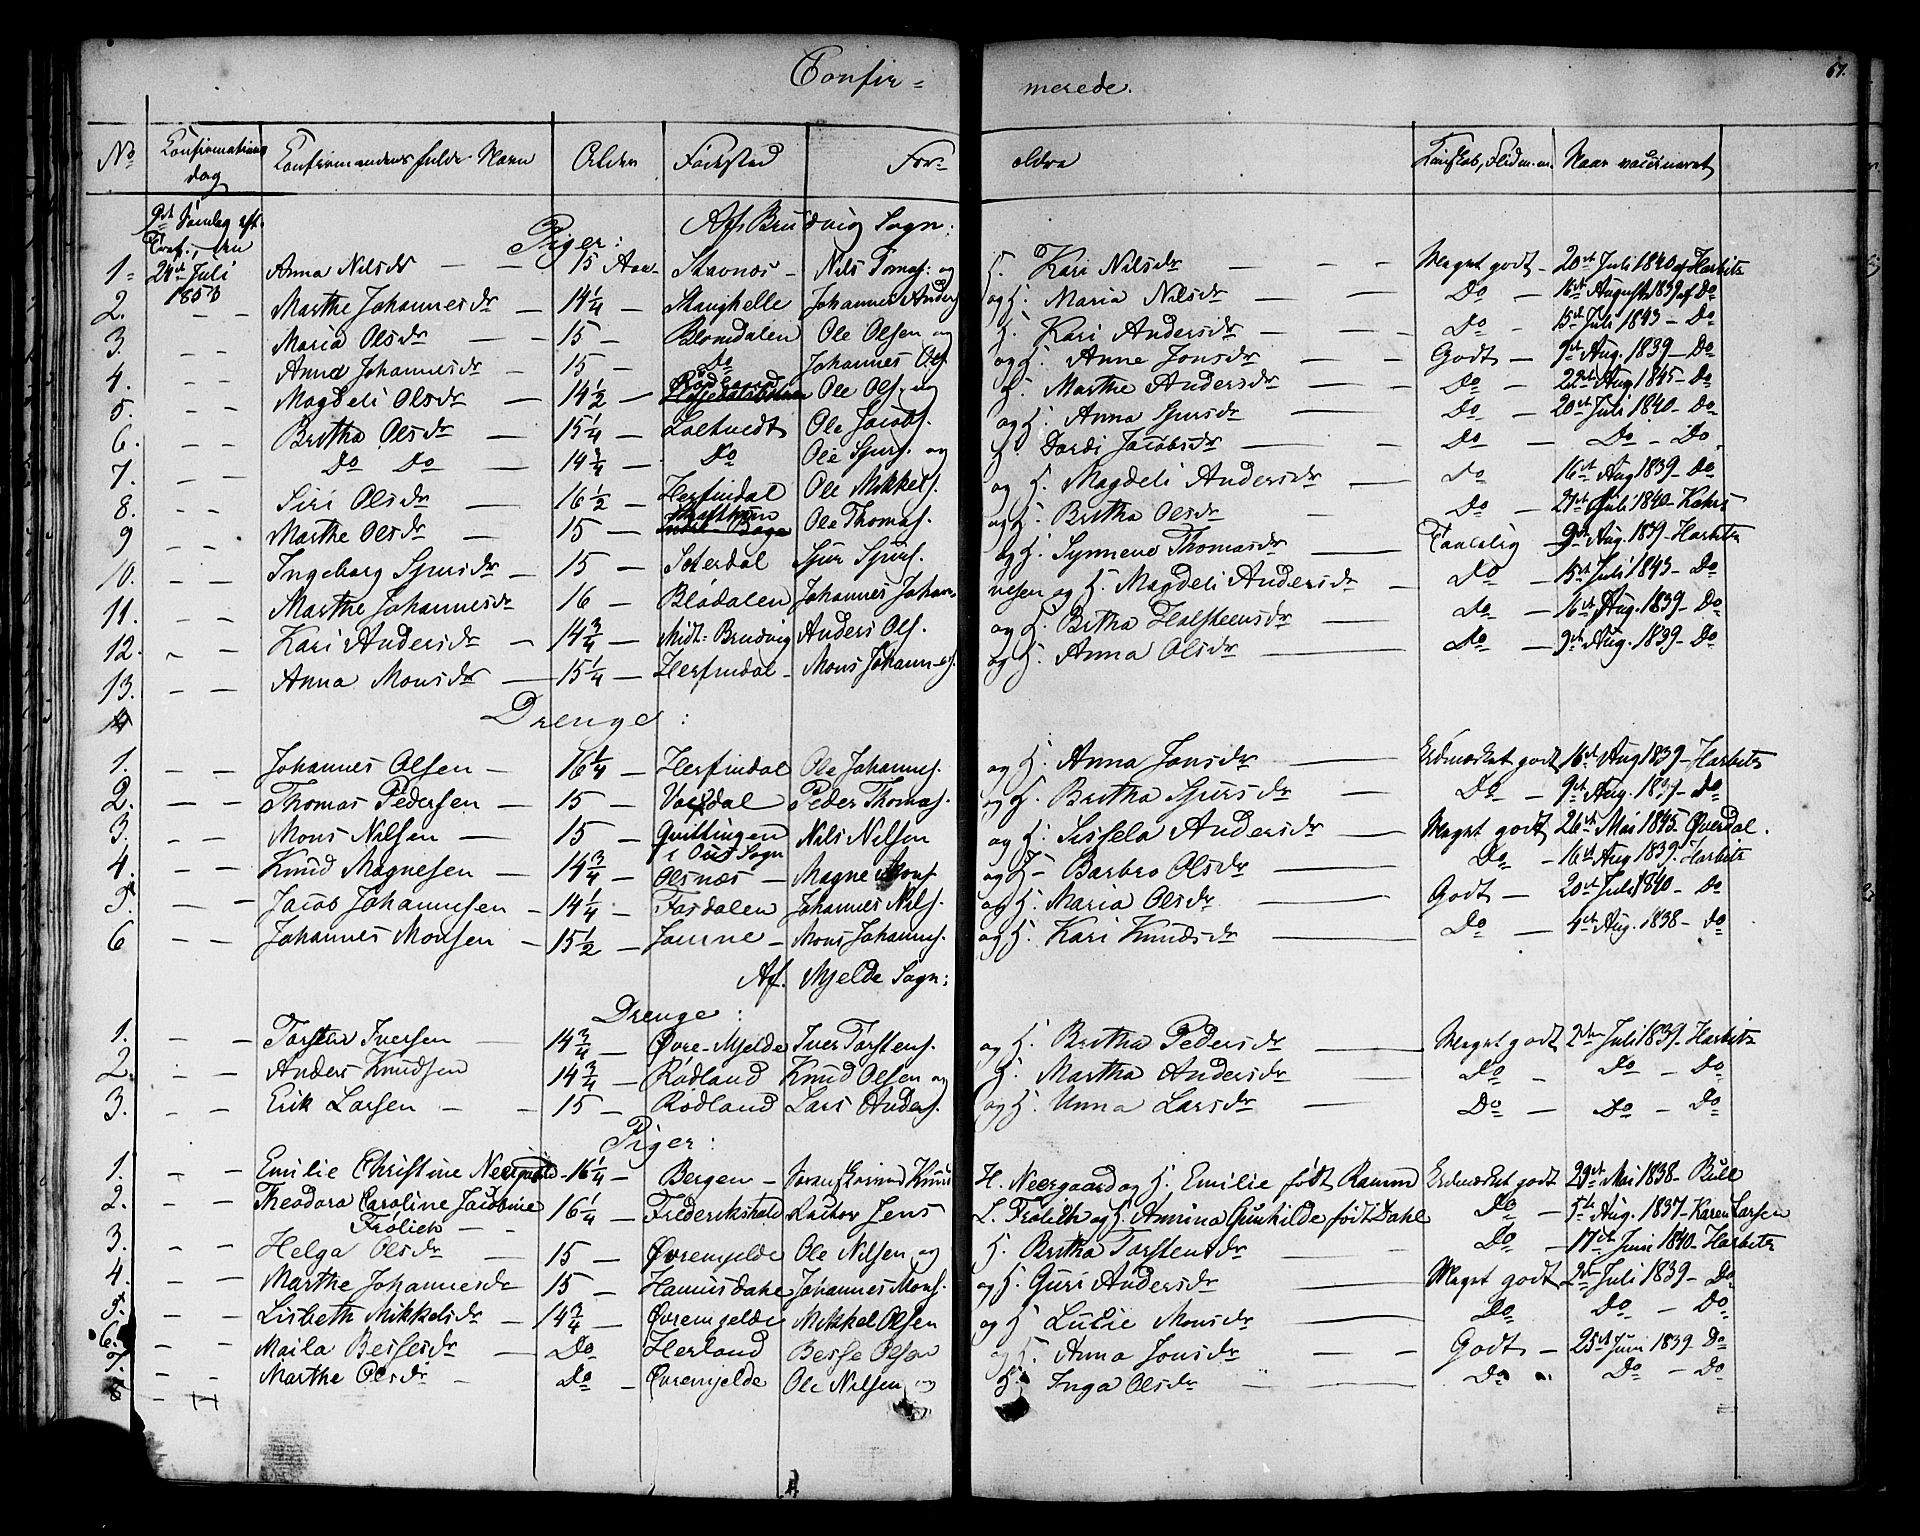 Confir= merede. 67.
No Confirmations dag Confirmandens fulde Navn Alder Fødested For- ældre Kundskab, Flid m.m. Naar vaccineret
9de Søndag eft. Piger: Af Brudvig Sogn:
1. 24de Juli 1853 Anna Nilsdr - 15 Aar - Stavnæs - Nils Tomas: og H. Kari Nilsdr - Meget godt - 20de Juli 1840 af Harbitz
2. - - Marthe Johannesdr - 14 1/4 - Stanghelle Johannes Anders og H. Maria Nilsdr - Do - 16de August 1839 af Do
3. - - Maria Olsdr - 15 - Blomdalen Ole Olsen og H. Kari Andersdr - Do - 15de Juli 1843 - Do
4. - - Anna Johannesdr - 15 - Do Johannes Ols. og H. Anne Jonsdr - Godt - 9de Aug. 1839 - Do
5. - - Magdeli Olsdr - 14 1/2 - Ole Ols. og H. Marthe Andersdr - Do - 22de Aug 1845 - Do
6. - - Britha Olsdr - 15 1/4 - Loltvedt Ole Jacobs. og H. Anna Sjursdr - Do - 20de Juli 1840 - Do
7. - - Do Do - 14 3/4 - Do Ole Sjurs. og H. Dordi Jacobsdr - Do - Do - Do
8. - - Siri Olsdr - 16 1/2 - Herfindal Ole Mikkels. og H. Magdeli Andersdr - Do - 16de Aug 1839 - Do
9 - - Marthe Olsdr - 15 - Ole Thomas. og H. Britha Olsdr - Do - 27de Juli 1840 -
10. - - Ingeborg Sjursdr - 15 - Soterdal Sjur Sjurs. og H. Synneve Thomasdr - Taalelig - 9de Aug. 1839 - Harbitz
11. - - Marthe Johannesdr 16 - Blådalen Johannes Johan- nesen og H. Magdeli Andersdr - Do - 15de Juli 1843 - Do
12. - - Kari Andersdr - 14 3/4 - Midt-Brudvig Anders Ols. og H. Britha Halsteensdr - Do - 16de Aug. 1839 - Do
13. - - Anna Monsdr - 15 1/4 - Herfindal - Mons Johannes. og H. Anna Olsdr - Do - 9de Aug. 1839 - Do
Drenge:
1. - - Johannes Olsen - 16 1/4 - Herfindal Ole Johannes. og H. Anna Jonsdr - Udmærket godt 16de Aug 1839 - Harbitz
2. - - Thomas Pedersen - 15 - Vaxdal Peder Thomas. og H. Britha Sjursdr - Do - 9de Aug. 1839 - Do
3. - - Mons Nilsen - 15 - Qvittingen i Ous Sogn Nils Nilsen og H. Sissela Andersdr - Meget godt 26de Mai 1845 Øverdal.
4. - - Knud Magnesen - 14 3/4 - Olsnæs - Magne Mons. og H. Barbro Olsdr - Do - 16de Aug 1839. Harbitz
5. - - Jacob Johannesen - 14 1/4 - Fosdalen Johannes Nils. og H. Maria Olsdr - Godt - 20de Juli 1840 - Do
6 - - Johannes Monsen - 15 1/2 - Mons Johannes. og H. Kari Knudsdr - Do - Aug. 1838 - Do
Af Mjelde Sogn:
Drenge:
1. - - Torsten Iversen - 14 3/4 - Øvre-Mjelde Iver Torstens. og H. Britha Pedersdr - Meget godt 2den Juli 1839. Harbitz
2. - - Anders Knudsen 14 3/4 - Rødland Knud Olsen og H. Martha Andersdr - Do - Do - Do
3. - - Erik Larsen - 15 - Rødland Lars Anders. og H. Unna Larsdr - Do - Do - Do
Piger:
1. - - Emilie Christine Neergaard - 16 1/4 - Bergen - H. Neergaard og H. Emilie født Ramm Udmærket godt 29de Mai 1838 - Bull
2. - - Theodora Caroline Jacobine Frölich 16 1/4 - Frederikshald Jens L. Frölich og H. Annina Gunhilde født Dahl Do - 5te Aug. 1837 - Karen Larsen
3. - - Helga Olsdr - 15 - Øvremjelde Ole Nilsen og H. Britha Torstensdr - Do - 17de Juni 1840 - Harbitz
4. - - Marthe Johannesdr 15 - Hamusdahl Johannes Mons. og H. Guri Andersdr - Meget godt 2den Juli 1839 - Do
5. - - Lisbeth Mikkelsdr - 14 3/4 - Øvremjelde Mikkel Olsen og H. Lucie Monsdr - Do - Do - Do
6. - - Maila Bessesdr - Do - Herland Besse Olsen og H. Anna Jonsdr - Godt - 25de Juni 1839 Do
7. - - Marthe Olsdr - Do - Øvremjelde Ole Nilsen og H. Inga Olsdr - Do - Do - Do
8